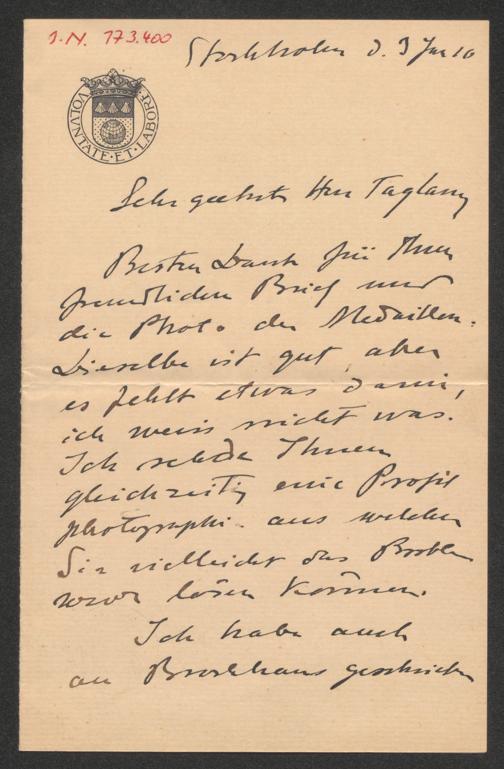 I.N. 173.400
Stockholm d. 3 Jan 10
VOLVNTATE·ET·LABORE
Sehr geehrter Herr Taglang
Besten Dank für Ihren
freundlichen Brief und
die Photo der Medaillon.
Dieselbe ist gut, aber
es fehlt etwas darin,
ich weiss nicht was.
Ich sende Ihnen
gleichzeitig eine Profil
photographie aus welcher
Sie vielleicht das Problem
lösen können.
Ich habe auch
an Brockhaus geschrieben